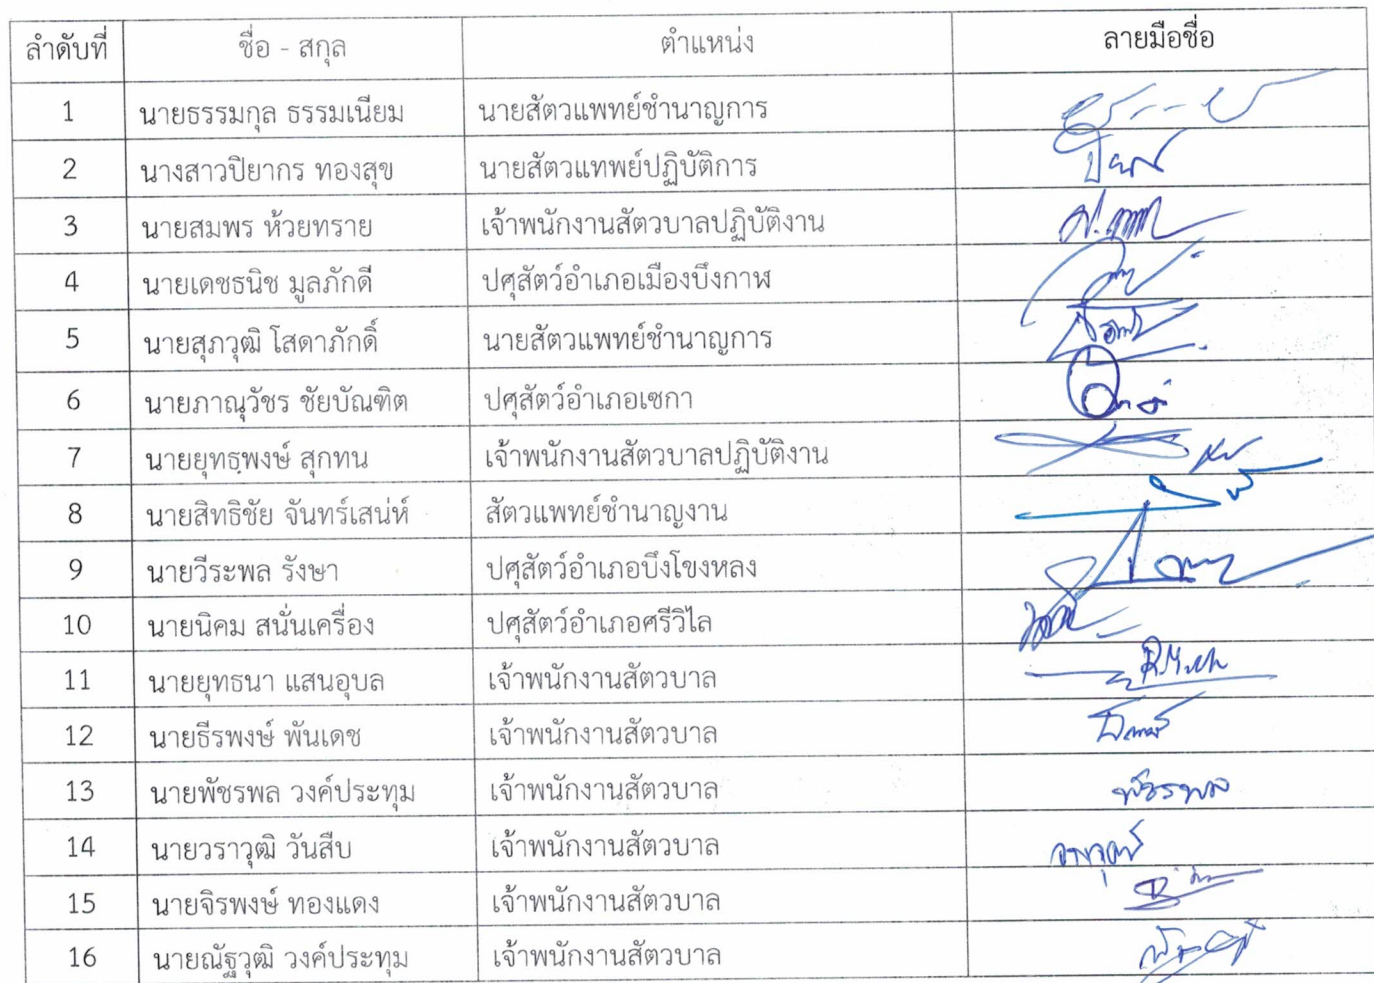 ลำดับที่ ชื่อ - สกุล ตำแหน่ง ลายมือชื่อ
1 นายธรรมกุล ธรรมเนียม นายสัตวแพทย์ชำนาญการ
2 นางสาวปิยากร ทองสุข นายสัตวแทพย์ปฏิบัติการ
3 นายสมพร ห้วยทราย เจ้าพนักงานสัตวบาลปฏิบัติงาน
4 นายเดชธนิช มูลภักดี ปศุสัตว์อำเภอเมืองบึงกาฬ
5 นายสุภวุฒิ โสดาภักดิ์ นายสัตวแพทย์ชำนาญการ
6 นายภาณุวัชร ชัยบัณฑิต ปศุสัตว์อำเภอเซกา
7 นายยุทธพงษ์ สุกทน เจ้าพนักงานสัตวบาลปฏิบัติงาน
8 นายสิทธิชัย จันทร์เสน่ห์ สัตวแพทย์ชำนาญงาน
9 นายวีระพล รังษา ปศุสัตว์อำเภอบึงโขงหลง
10 นายนิคม สนั่นเครื่อง ปศุสัตว์อำเภอศรีวิไล
11 นายยุทธนา แสนอุบล เจ้าพนักงานสัตวบาล
12 นายธีรพงษ์ พันเดช เจ้าพนักงานสัตวบาล
13 นายพัชรพล วงค์ประทุม เจ้าพนักงานสัตวบาล พัชรพล
14 นายวราวุฒิ วันสืบ เจ้าพนักงานสัตวบาล
15 นายจิรพงษ์ ทองแดง เจ้าพนักงานสัตวบาล
16 นายณัฐวุฒิ วงค์ประทุม เจ้าพนักงานสัตวบาล